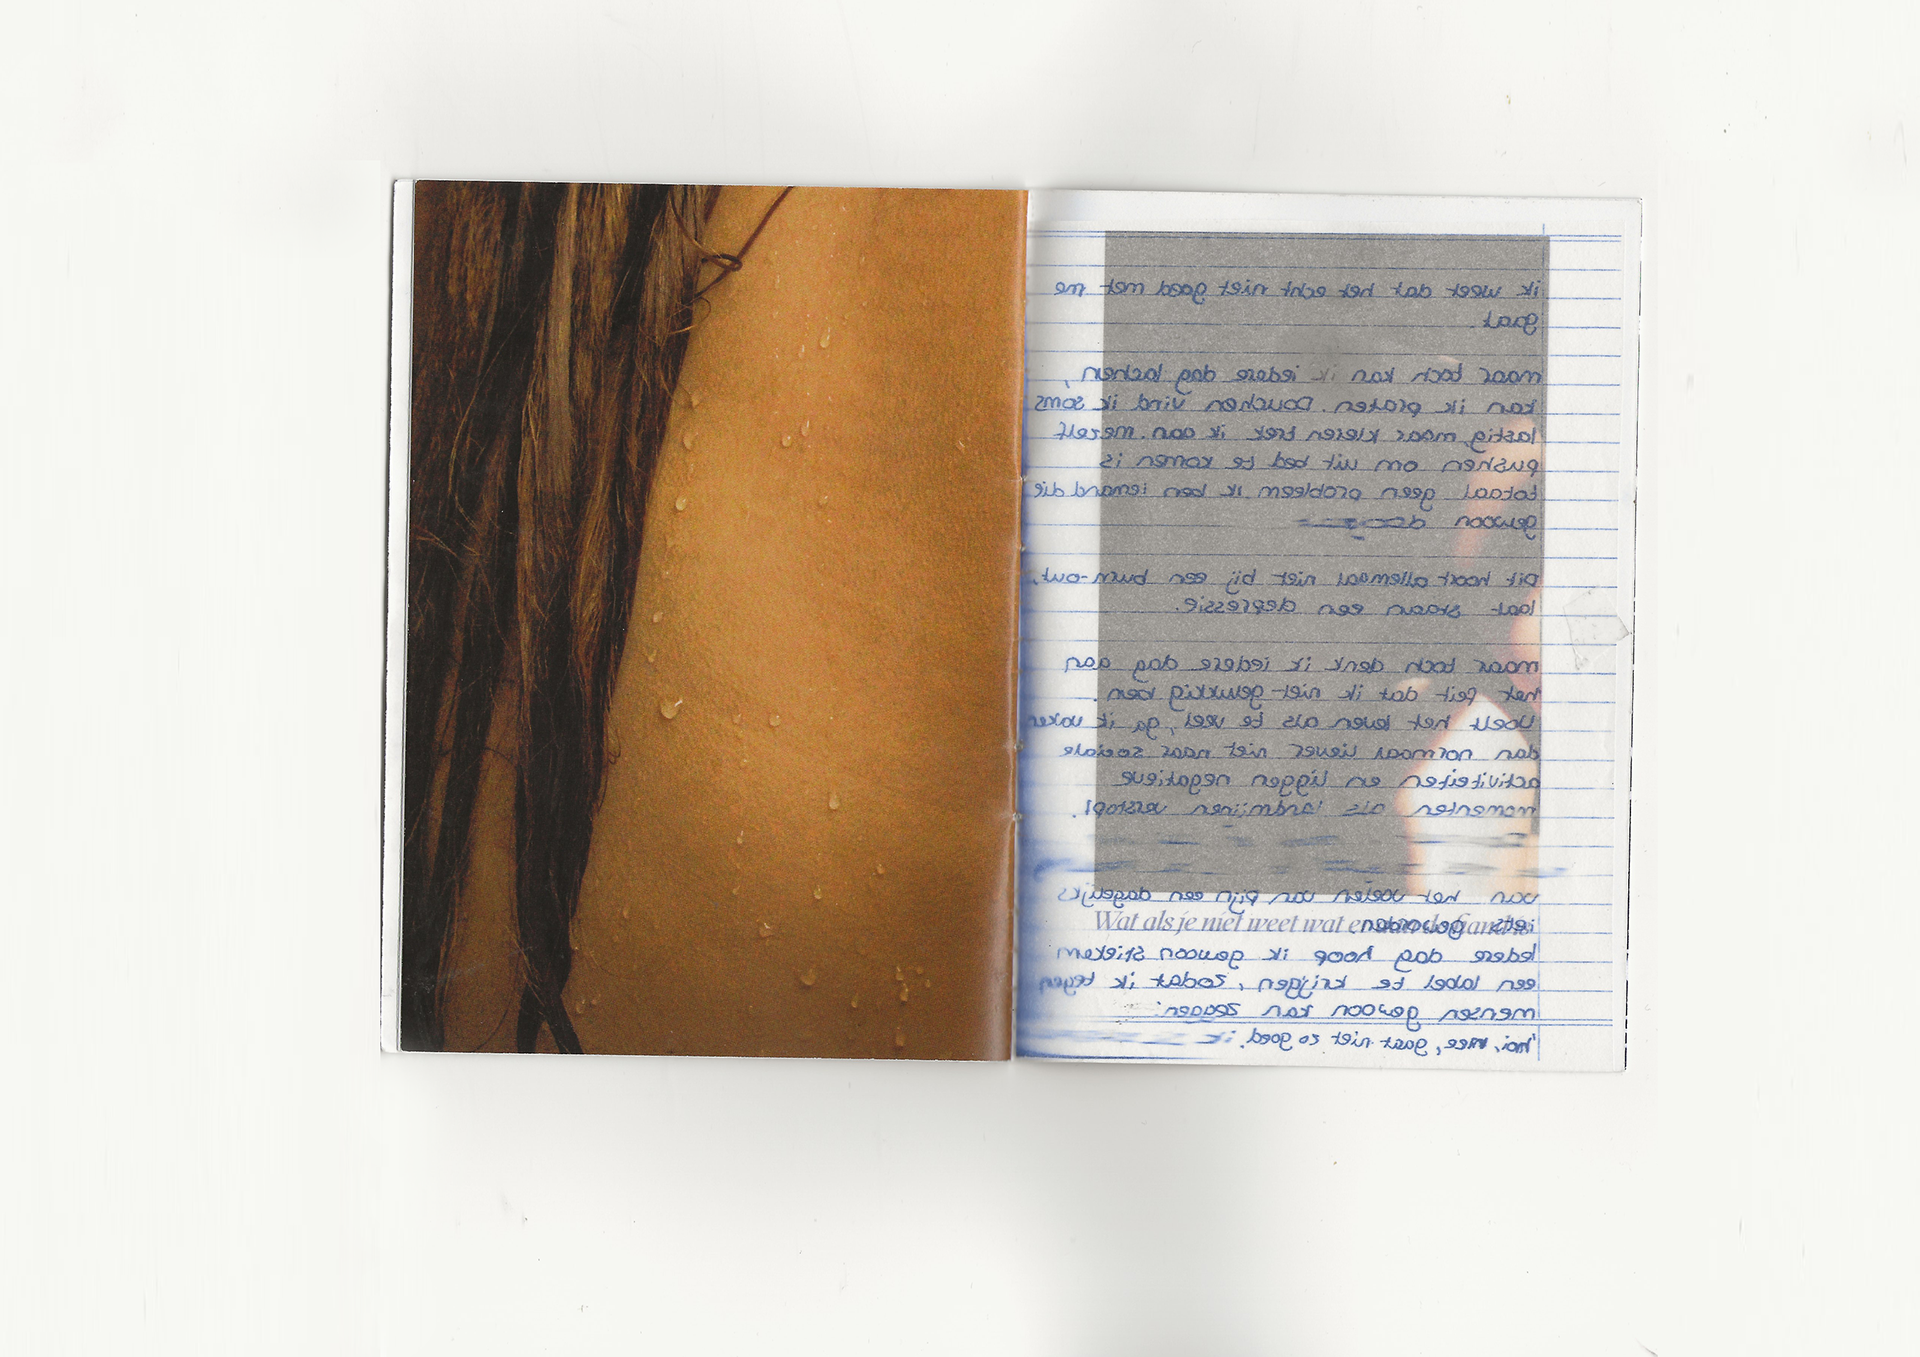 ik weet dat het echt niet goed met me
gaat.
maar toch kan ik iedere dag lachen,
kan ik praten. Douchen vind ik soms
lastig, maar kleren trek ik aan. mezelf
pushen om uit bed te komen is
totaal geen probleem ik ben iemand die
gewoon
Dit hoort allemaal niet bij een burn-out,
laat staan een depressie.
maar toch denk ik iedere dag aan
het feit dat ik niet gelukkig ben.
Voelt het leven als te veel, ga ik vaker
dan normaal liever niet naar sociale
activiteiten en liggen negatieve
momenten als landmijnen verstopt.
van het voelen van pijn een dagelijks
iets geworden
Wat als je niet weet wat er aan de hand is
Iedere dag hoop ik gewoon stiekem
een label te krijgen, zodat ik tegen
mensen gewoon kan zeggen:
'hoi, nee, gaat niet zo goed. ik